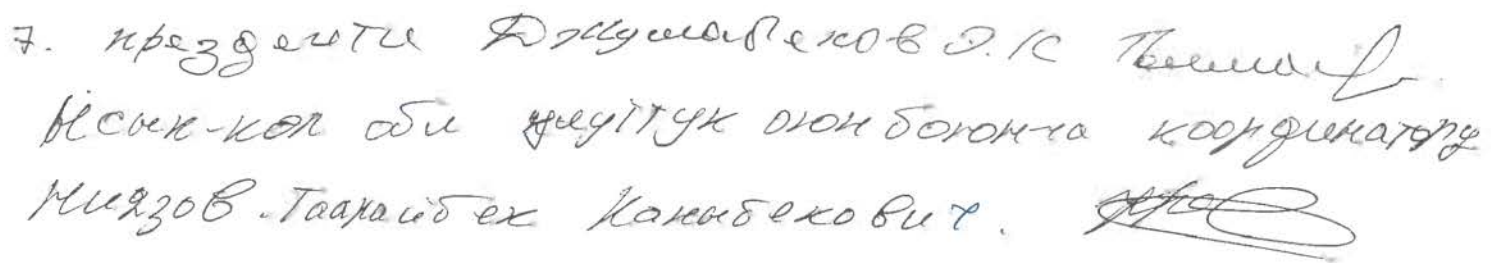 7. презденти Джумабеков Э.К
Ысык-көл обл улуттук оюн боюнча координатору
Ниязов. Таалайбек Каныбекович.